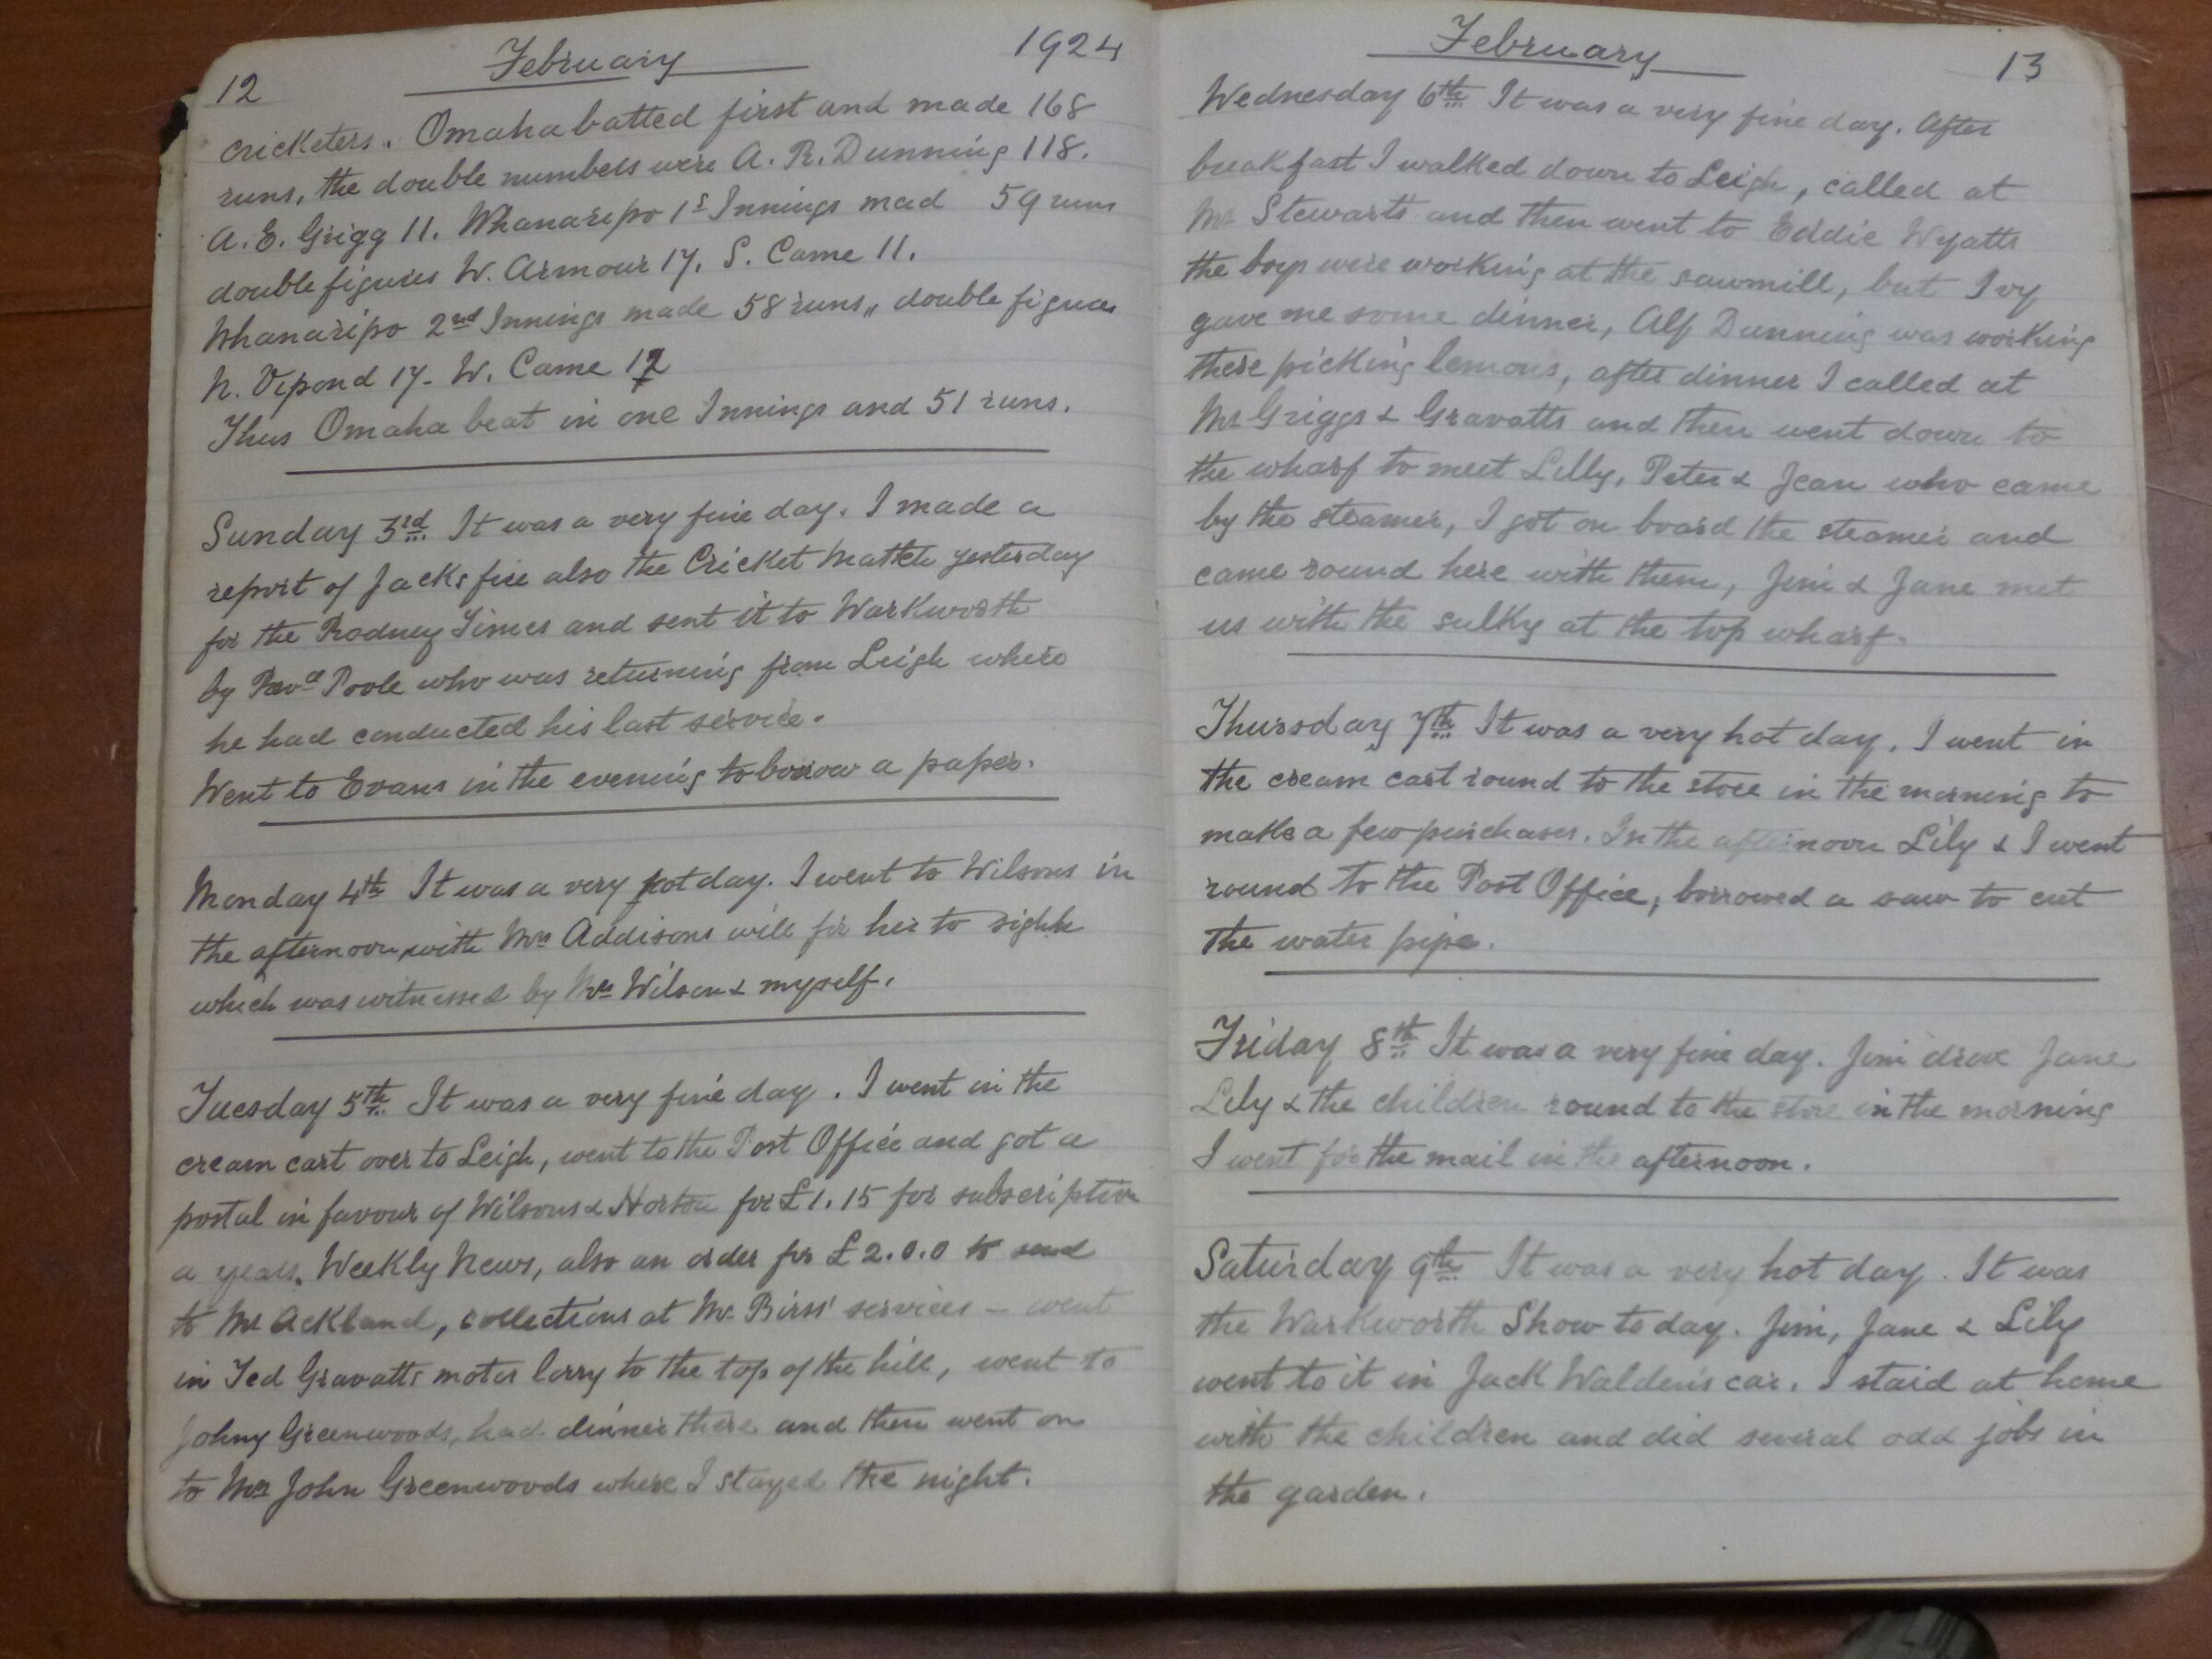 12 February 1924
cricketers. Omaha batted first and made 168
runs, the double numbers were A. R. Dunning 118.
A. E. Grigg 11. Whanaripo 1s Innings mad 59 runs
double figures W. Armour 17. S. Came 11.
Whanaripo 2nd Innings made 58 runs,, double figures
N. Vipond 17- W. Came 12
Thus Omaha beat in one Innings and 51 runs.
Sunday 3rd It was a very fine day. I made a
report of Jacks fire also the Cricket Match yesterday
for the Rodney Times and sent it to Warkworth
by Revd Poole who was returning from Leigh where
he had conducted his last service.
Went to Evans in the evening to borrow a paper.
Monday 4th It was a very hot day. I went to Wilsons in
the afternoon with Mrs Addisons will for her to sighn
which was witnessed by Mrs Wilson & myself.
Tuesday 5th It was a very fine day. I went in the
cream cart over to Leigh, went to the Post Office and got a
postal in favour of Wilsons & Horton for £1.15 for subscription
a years. Weekly News, also an order for £2.0.0 to send
to Mr Ackland, collections at Mr Birss' services - went
in Ted Gravatts motor lorry to the top of the hill, went to
Johny Greenwoods, had dinner there and then went on
to Mrs John Greenwoods where I stayed the night.
February 13
Wednesday 6th It was a very fine day. After
breakfast I walked down to Leigh, called at
Mr Stewarts and then went to Eddie Wyatts
the boys were working at the sawmill, but Ivy
gave me some dinner, Alf Dunning was working
there picking lemons, after dinner I called at
Mr Griggs & Gravatts and then went down to
the wharf to meet Lilly, Peter & Jean who came
by the steamer, I got on board the steamer and
came round here with them, Jim & Jane met
us with the sulky at the top wharf.
Thursday 7th It was a very hot day. I went in
the cream cart round to the store in the morning to
make a few purchases. In the afternoon Lily & I went
round to the Post Office, borrowed a saw to cut
the water pipe.
Friday 8th It was a very fine day. Jim drove Jane
Lily & the children round to the store in the morning
I went for the mail in the afternoon.
Saturday 9th It was a very hot day. It was
the Warkworth Show today. Jim, Jane & Lily
went to it in Jack Walden's car. I staid at home
with the children and did several odd jobs in
the garden.